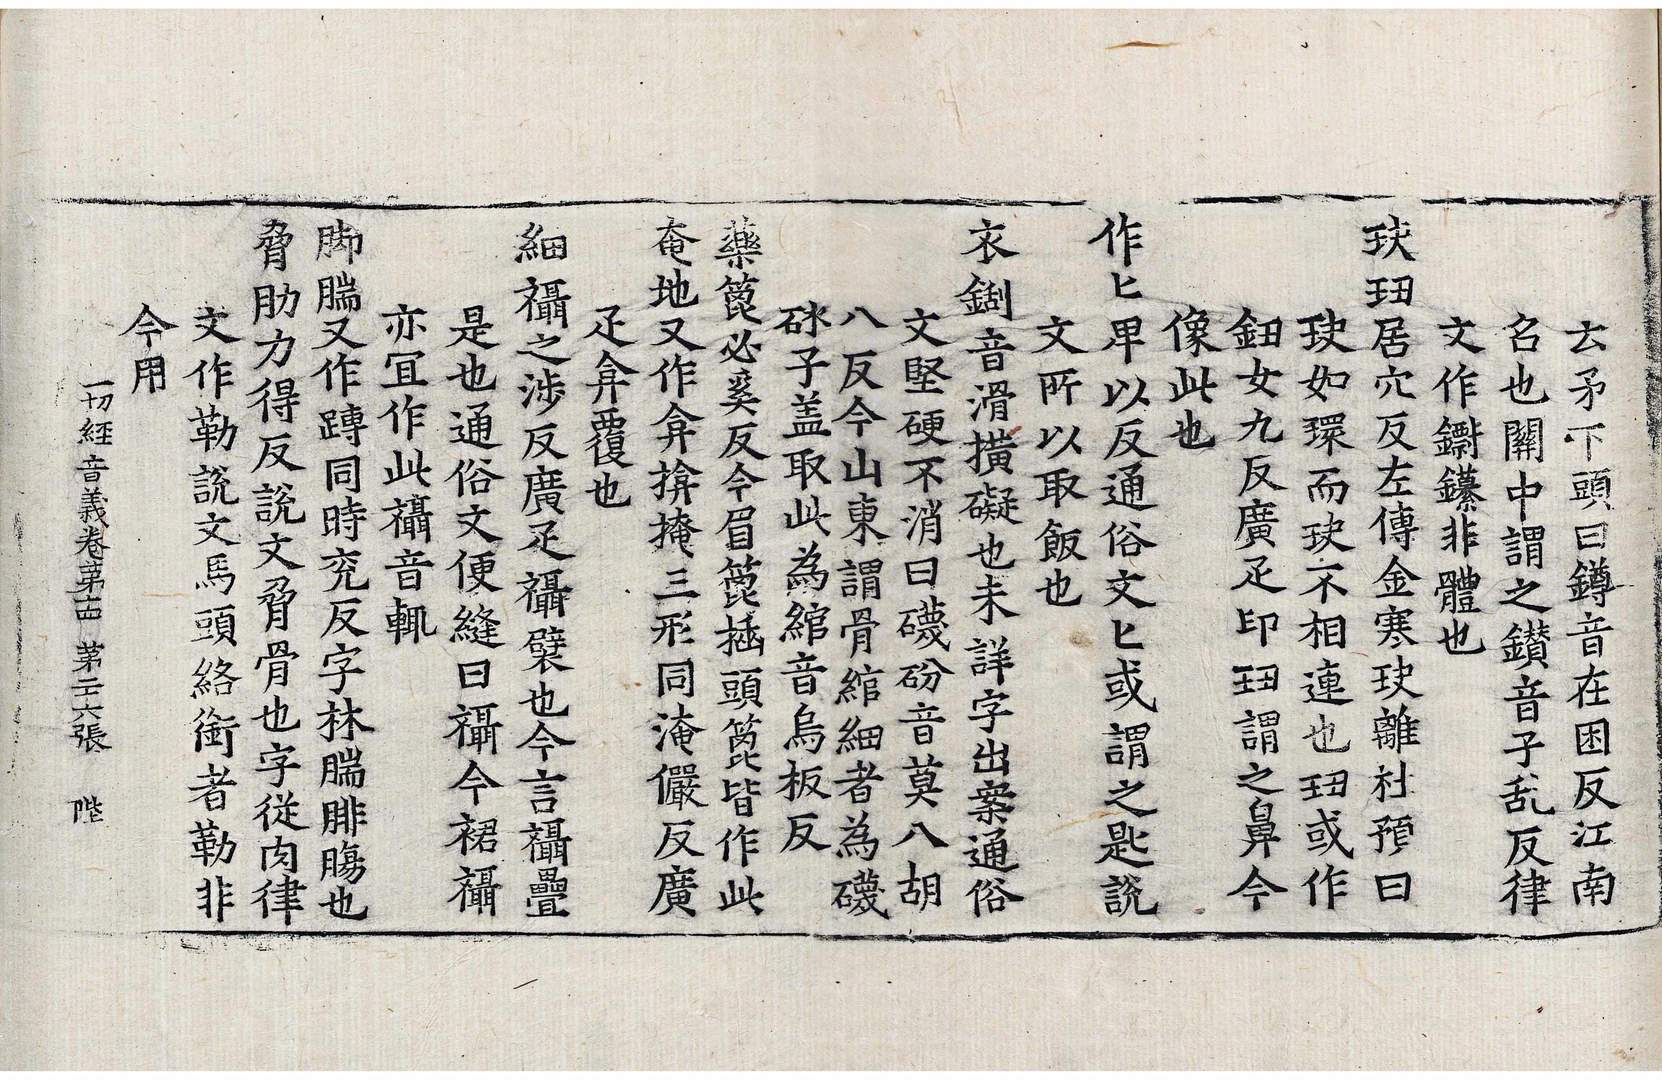 云矛下頭曰鐏音在困反江南
名也關中謂之鑽音子乱反律
文作鑭鑻非體也
玦玾居穴反左傳金寒玦離社預曰
玦如環而玦不相連也玾或作
鈕女九反廣疋印玾謂之鼻今
像此也
作匕卑以反通俗文匕或謂之匙說
文所以取飯也
衣𨧱音滑撗礙也未詳字出案通俗
文堅硬不消曰磯砏音莫八胡
八反今山東謂骨綰細者為磯
砅子盖取此為綰音烏板反
藥篦必奚反今眉篦揷頭篦皆作此
奄地又作弇揜掩三形同淹儼反廣
疋弇覆也
細襵之涉反廣疋襵襞也今言襵疊
是也通俗文便縫曰襵今裙襵
亦冝作此襵音輒
脚腨又作䠾同時兖反字林腨腓膓也
脅肋力得反說文脅骨也字從肉律
文作勒說文馬頭絡銜者勒非
今用
一切經音義卷第十四　第二十六張　陛